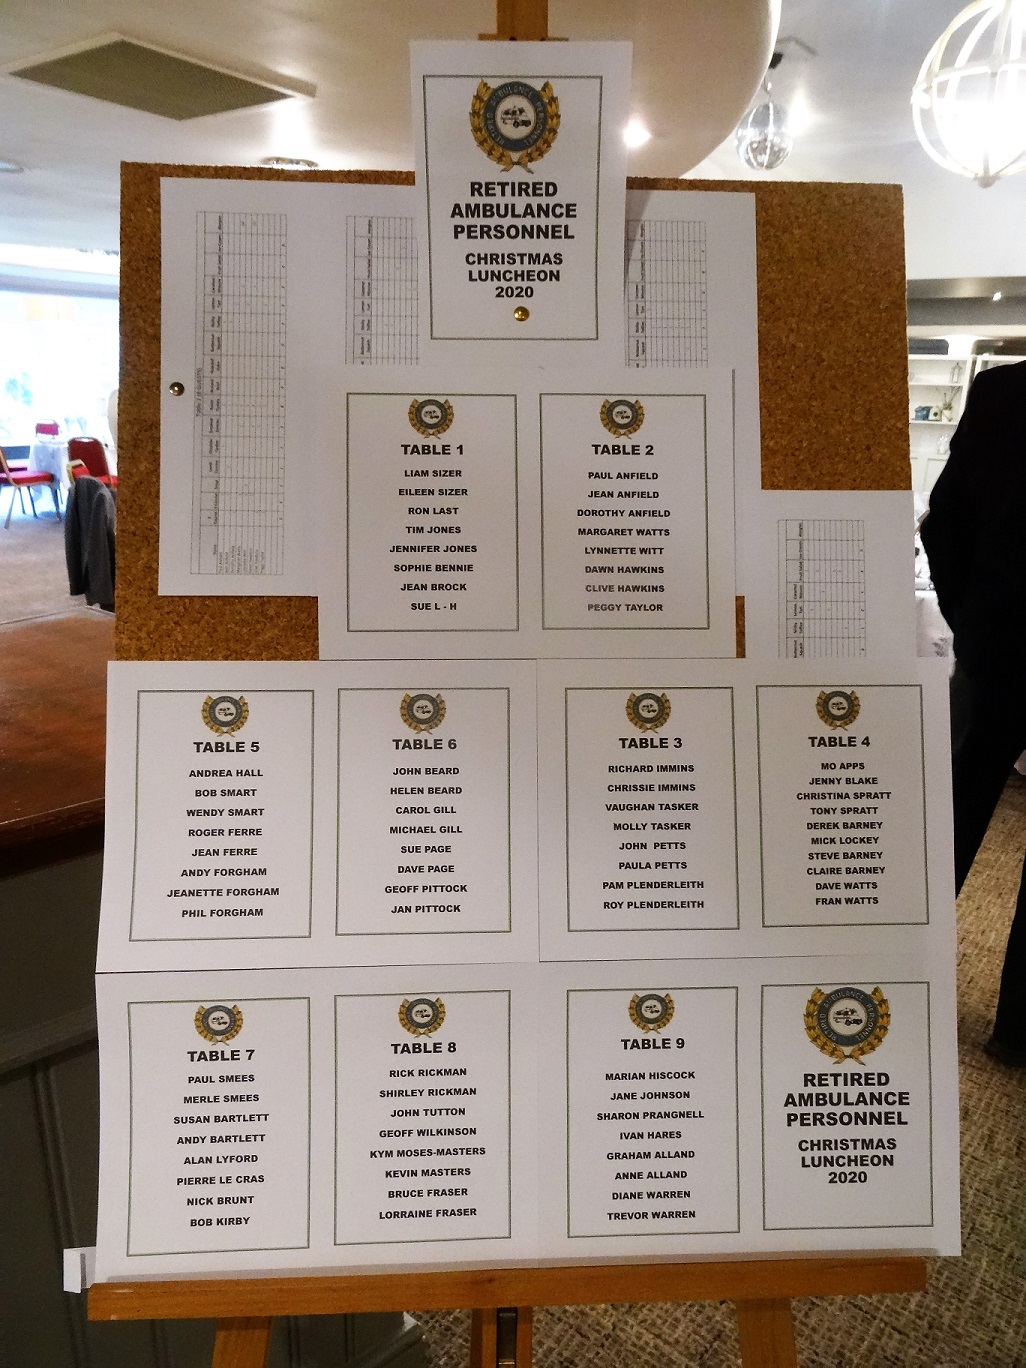 RETIRED
AMBULANCE
PERSONNEL
CHRISTMAS
LUNCHEON
2020
TABLE 1
LIAM SIZER
EILEEN SIZER
RON LAST
TIM JONES
JENNIFER JONES
SOPHIE BENNIE
JEAN BROCK
SUE L - H
TABLE 2
PAUL ANFIELD
JEAN ANFIELD
DOROTHY ANFIELD
MARGARET WATTS
LYNNETTE WITT
DAWN HAWKINS
CLIVE HAWKINS
PEGGY TAYLOR
TABLE 5
ANDREA HALL
BOB SMART
WENDY SMART
ROGER FERRE
JEAN FERRE
ANDY FORGHAM
JEANETTE FORGHAM
PHIL FORGHAM
TABLE 6
JOHN BEARD
HELEN BEARD
CAROL GILL
MICHAEL GILL
SUE PAGE
DAVE PAGE
GEOFF PITTOCK
JAN PITTOCK
TABLE 3
RICHARD IMMINS
CHRISSIE IMMINS
VAUGHAN TASKER
MOLLY TASKER
JOHN PETTS
PAULA PETTS
PAM PLENDERLEITH
ROY PLENDERLEITH
TABLE 4
MO APPS
JENNY BLAKE
CHRISTINA SPRATT
TONY SPRATT
DEREK BARNEY
MICK LOCKEY
STEVE BARNEY
CLAIRE BARNEY
DAVE WATTS
FRAN WATTS
TABLE 7
PAUL SMEES
MERLE SMEES
SUSAN BARTLETT
ANDY BARTLETT
ALAN LYFORD
PIERRE LE CRAS
NICK BRUNT
BOB KIRBY
TABLE 8
RICK RICKMAN
SHIRLEY RICKMAN
JOHN TUTTON
GEOFF WILKINSON
KYM MOSES-MASTERS
KEVIN MASTERS
BRUCE FRASER
LORRAINE FRASER
TABLE 9
MARIAN HISCOCK
JANE JOHNSON
SHARON PRANGNELL
IVAN HARES
GRAHAM ALLAND
ANNE ALLAND
DIANE WARREN
TREVOR WARREN
RETIRED AMBULANCE PERSONNEL
RETIRED
AMBULANCE
PERSONNEL
CHRISTMAS
LUNCHEON
2020